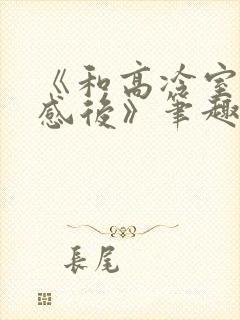 《和高冷室
感後》筆趣
長尾